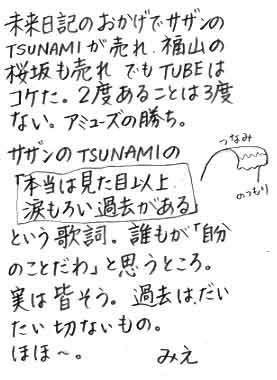 未来日記のおかげでサザンの
TSUNAMIが売れ、福山の
桜坂も売れ でもTUBEは
コケた。2度あることは3度
ない。アミューズの勝ち。
サザンのTSUNAMIの
つなみ
のつもり
「本当は見た目以上
涙もろい過去がある」
という歌詞。誰もが「自分
のことだわ」と思うところ。
実は皆そう。過去は、だい
たい切ないもの。
ほほ〜。 みえ